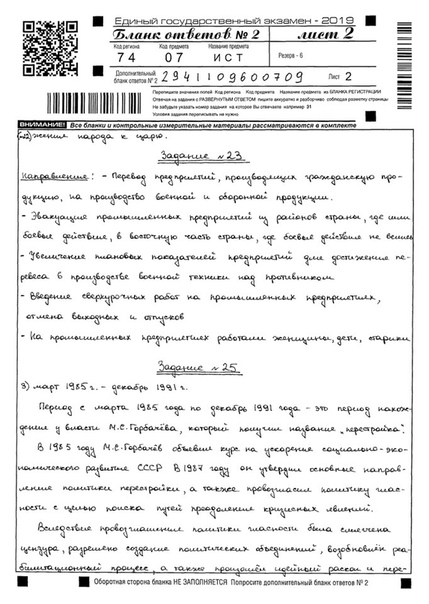 Единый государственный экзамен - 2019
Бланк ответов № 2 лист 2
Код региона Код предмета Название предмета
74 07 ИСТ Резерв - 6
Дополнительный бланк ответов № 2 2941109600709 Лист 2
Перепишите значения полей Код региона, Код предмета, Название предмета из БЛАНКА РЕГИСТРАЦИИ
Отвечая на задания с РАЗВЕРНУТЫМ ОТВЕТОМ пишите аккуратно и разборчиво, соблюдая разметку страницы
Не забудьте указать номер задания на которое Вы отвечаете например 31
Условия задания переписывать не нужно
ВНИМАНИЕ! Все бланки и контрольные измерительные материалы рассматриваются в комплекте
жения народа к царю.
Задание №23.
Направление: - Перевод предприятий, производящих гражданскую про-
дукцию, на производство военной и оборонной продукции.
- Эвакуация промышленных предприятий из районов страны, где шли
боевые действие, в восточную часть страны, где боевые действие не велись
- Увеличение плановых показателей предприятий для достижения пе-
ревеса в производстве военной техники над противником.
- Введение сверхурочных работ на промышленных предприятиях,
отмена выходных и отпусков
- На промышленных предприятиях работали женщины, дети, старики
Задание №25.
3) март 1985 г. - декабрь 1991 г.
Период с марта 1985 года по декабрь 1991 года - это период нахож-
дения у власти М.С. Горбачёва, который получил название "перестройка".
В 1985 году М.С. Горбачёв объявил курс на ускорение социально-эко-
номического развитие СССР. В 1987 году он утвердил основные направ-
ление политики перестройки, а также провозгласил политику глас-
ности с целью поиска путей преодоления кризисных явлений.
Вследствие провозглашения политики гласности была смягчена
цензура, разрешено создание политических объединений, возобновлён реа-
билитационный процесс, а также произошёл идейный раскол и пере-
Оборотная сторона бланка НЕ ЗАПОЛНЯЕТСЯ Попросите дополнительный бланк ответов № 2